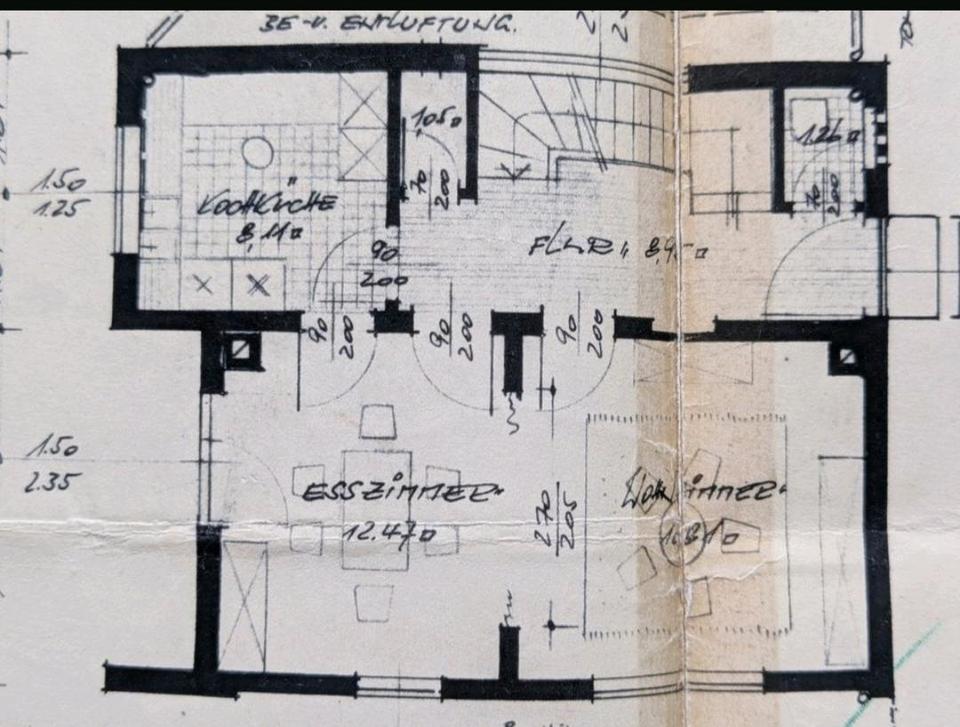 BE- U. ENTLÜFTUNG.
1.05 □
70
200
1.26 □
70
200
1.50
1.25
KOCHKÜCHE
8,11 □
90
200
FLUR
90
200
90
200
90
200
1.50
2.35
ESSZIMMER
12.47 □
270
205